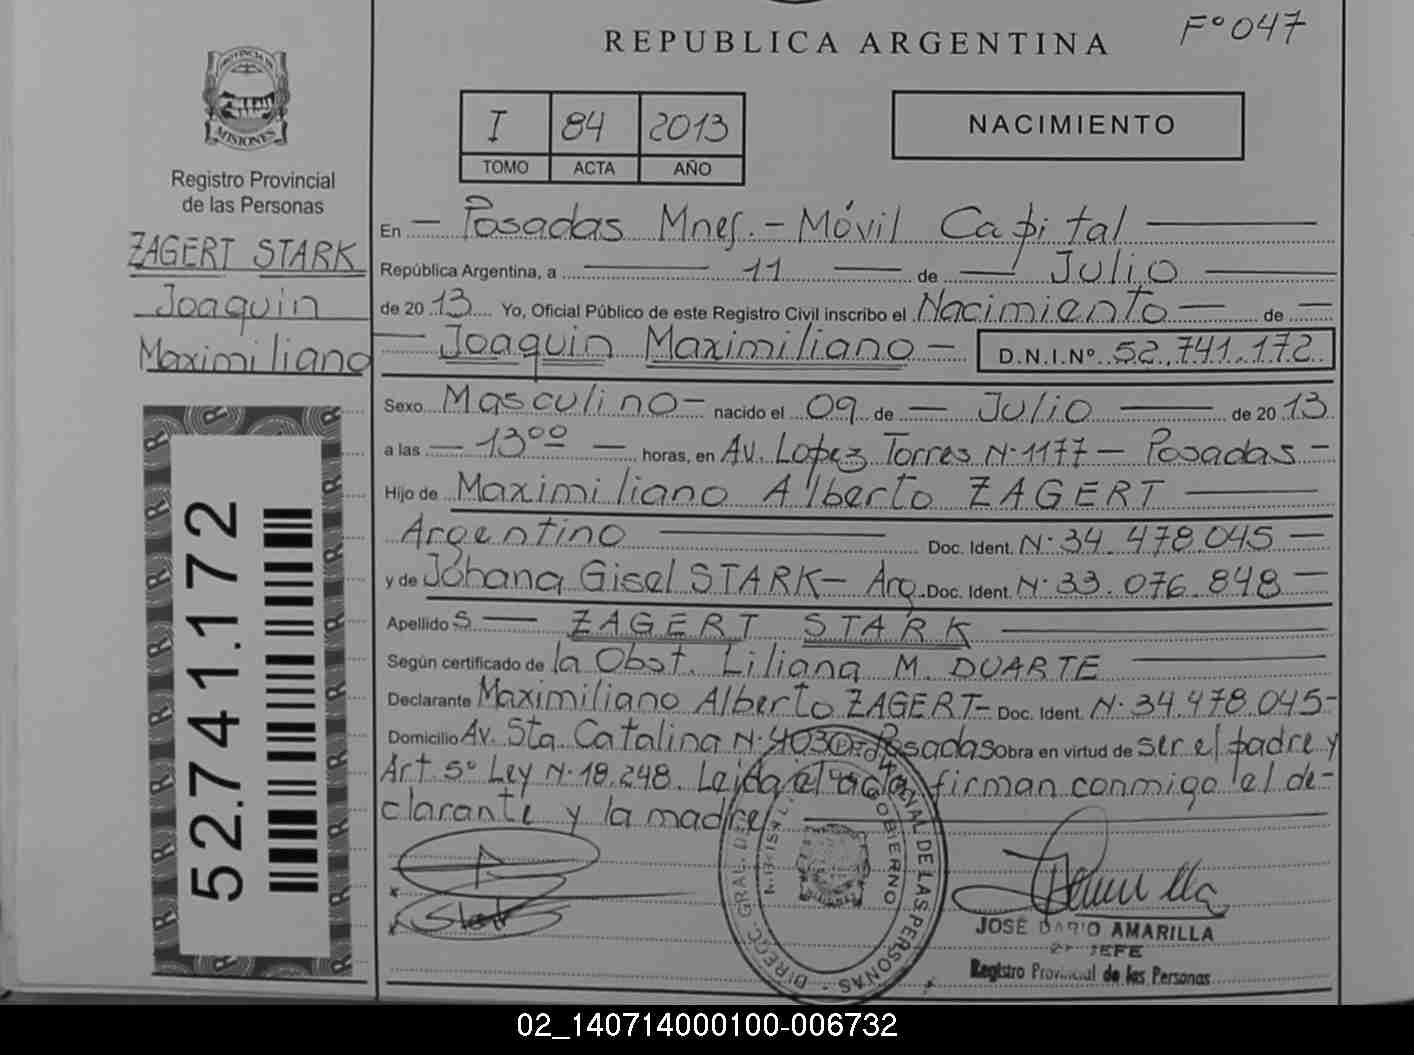 F° 047
REPUBLICA ARGENTINA
PROVINCIA DE
MISIONES
Registro Provincial
de las Personas
ZAGERT STARK
Joaquin
Maximiliano
52.741.172
I 84 2013
TOMO ACTA AÑO
NACIMIENTO
En — Posadas Mnes. - Móvil Capital —
República Argentina, a — 11 — de — Julio —
de 20 13 Yo, Oficial Público de este Registro Civil inscribo el Nacimiento — de —
— Joaquin Maximiliano — D.N.I.Nº 52.741.172
Sexo Masculino - nacido el 09 de — Julio — de 20 13
a las — 13ºº — horas, en Av. Lopez Torres N° 1177 — Posadas -
Hijo de Maximiliano Alberto ZAGERT —
Argentino — Doc. Ident. N° 34.478.045 —
y de Johana Gisel STARK — Arg. Doc. Ident. N° 33.076.848 —
Apellido s — ZAGERT STARK —
Según certificado de la Obst. Liliana M. DUARTE —
Declarante Maximiliano Alberto ZAGERT - Doc. Ident. N° 34.478.045 -
Domicilio Av. Sta. Catalina N° 4030 - Posadas Obra en virtud de ser el padre y
Art 5° Ley N° 18.248. Leida el acta firman conmigo el de-
clarante y la madre —
DIREC. GRAL. DE PVAL DE LAS PERSONAS
GOBIERNO
x
x Stark
JOSÉ DARIO AMARILLA
2º JEFE
Registro Provincial de las Personas
02_140714000100-006732